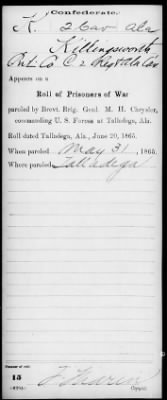 Confederate.
K. 2 Cav Ala
Killingsworth
Pvt. Co C. 2 Reg't Ala Cav
Appears on a
Roll of Prisoners of War
paroled by Brevt. Brig. Genl. M. H. Chrysler,
commanding U. S. Forces at Talladega, Ala.
Roll dated Talladega, Ala., June 20, 1865.
When paroled May 31, 1865.
Where paroled Talladega
Number of roll:
15
Copyist.